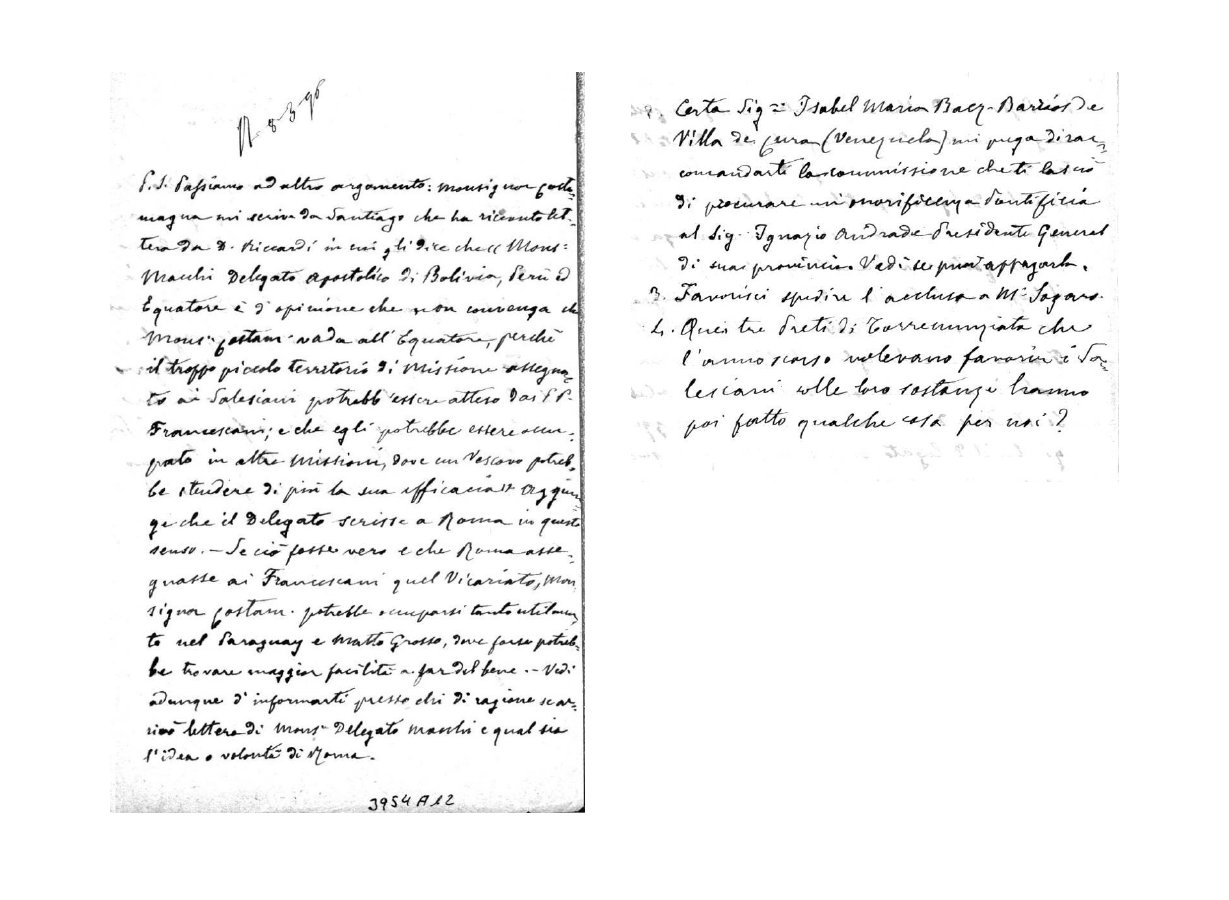 R 8-3-96
P.S. Passiamo ad altro argomento: Monsignor Costa=
magna mi scrive da Santiago che ha ricevuto let=
tera da D. Riccardi in cui gli dice che « Mons=
Macchi Delegato Apostolico di Bolivia, Perù ed
Equatore è d'opinione che non convenga che
Mons. Costam. vada all'Equatore, perchè
il troppo piccolo territorio di Missione assegna=
to ai Salesiani potrebb'essere atteso dai PP.
Francescani; e che egli potrebbe essere occu=
pato in altre Missioni, dove un Vescovo potreb=
be stendere di più la sua efficacia » Aggiun=
ge che il Delegato scrisse a Roma in questo
senso. — Se ciò fosse vero e che Roma asse=
gnasse ai Francescani quel Vicariato, Mon
signor Costam. potrebbe occuparsi tanto utilmen=
te nel Paraguay e Matto Grosso, dove forse potreb=
be trovare maggior facilità a far del bene. — Vedi
adunque d'informarti presso chi di ragione se ar=
rivò lettera di Mons. Delegato Macchi e qual sia
l'idea o volontà di Roma.
3954 A 12
2. Certa Sig = Isabel Maria Baez-Barrios de
Villa de Cura (Venezuela) mi prega di rac=
comandarti la commissione che ti lasciò
di procurare un'onorificenza Pontificia
al Sig. Ignazio Andrade Presidente General
di sua provincia. Vedi se puoi appagarla.
3. Favorisci spedire l'acclusa a Mr Sogaro.
4. Quei tre Preti di Torrenunziata che
l'anno scorso volevano favorire i Sa=
lesiani colle loro sostanze hanno
poi fatto qualche cosa per noi?